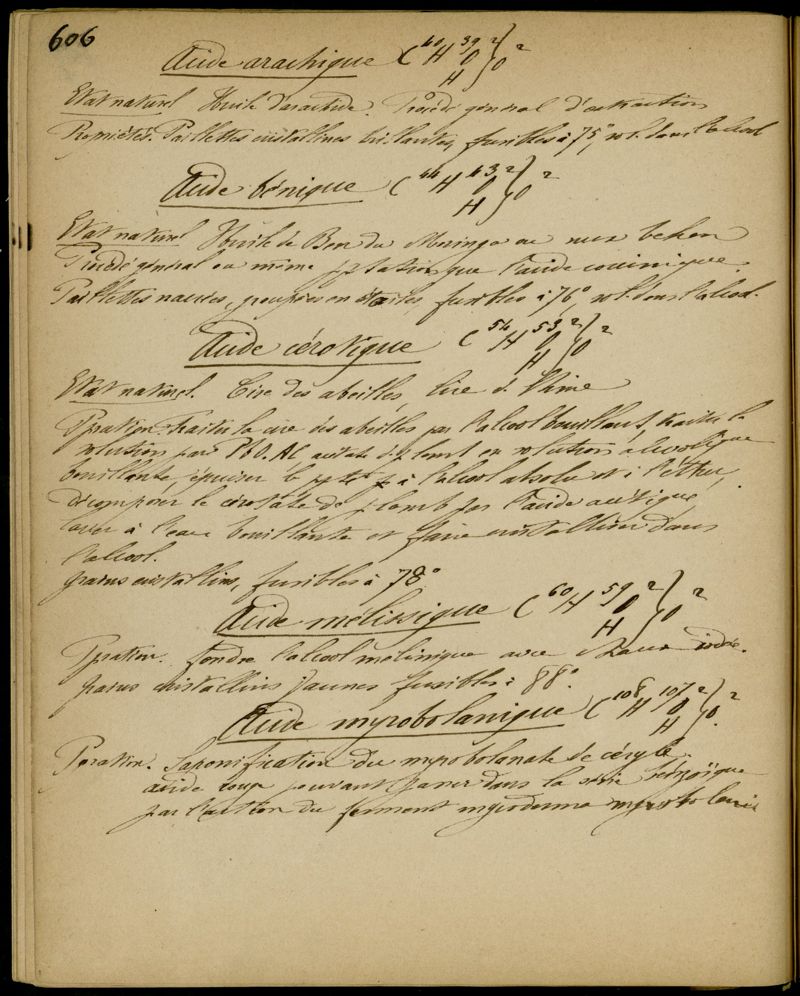 606
Acide arachique C⁴⁰H³⁹O² } O²
H
Etat naturel Huile d'arachide. Procédé général d'extraction
Propriétés. Paillettes cristallines brillantes, fusibles à 75°, sol. dans l'alcool
Acide bénique C⁴⁴H⁴³O² } O²
H
Etat naturel Huile de Ben du Moringa ou nux behen
Procédé général ou même que l'acide
Paillettes nacrées, groupées en étoiles, fusibles à 76°, sol. dans l'alcool.
Acide cérotique C⁵⁴H⁵³O² } O²
H
Etat naturel. Cire des abeilles, cire de Chine
Pration. Traiter la cire des abeilles par l'alcool bouillant, traiter la
solution par PbO.AC acétate de plomb en solution alcoolique
bouillante, épuiser le ppté à l'alcool absolu et à l'éther,
décomposer le cérotate de plomb par l'acide acétique,
laver à l'eau bouillante et faire cristalliser dans
l'alcool.
grains cristallins, fusibles à 78°
Acide mélissique C⁶⁰H⁵⁹O² } O²
H
Pration. fondre l'alcool avec chaux sodée.
grains cristallins jaunes fusibles à 88°.
Acide myrobolanique C¹⁰⁸H¹⁰⁷O² } O².
H
Pration. Saponification du myrobolanate de céryle
acide rouge pouvant passer dans la série
par l'action du ferment mycoderma